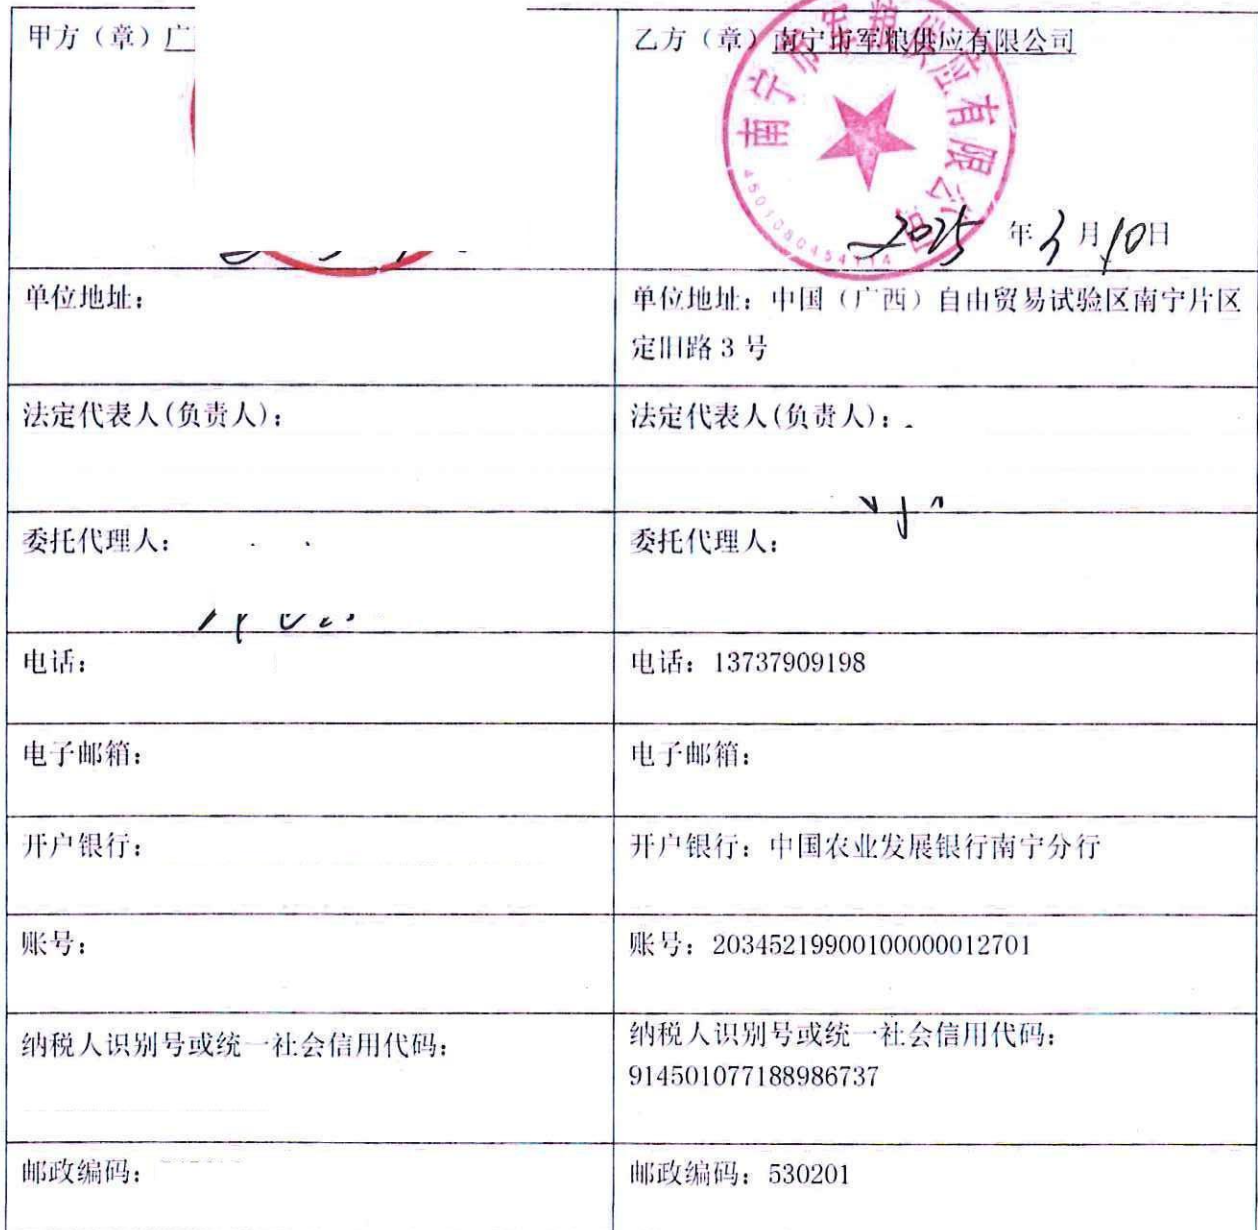 甲方（章）广
乙方（章）南宁市军粮供应有限公司
南宁市军粮供应有限公司
2025 年 3 月 10 日
单位地址：
单位地址：中国（广西）自由贸易试验区南宁片区
定旧路 3 号
法定代表人(负责人)：
法定代表人(负责人)：
委托代理人：
委托代理人：
电话：
电话：13737909198
电子邮箱：
电子邮箱：
开户银行：
开户银行：中国农业发展银行南宁分行
账号：
账号：20345219900100000012701
纳税人识别号或统一社会信用代码：
纳税人识别号或统一社会信用代码：
914501077188986737
邮政编码：
邮政编码：530201